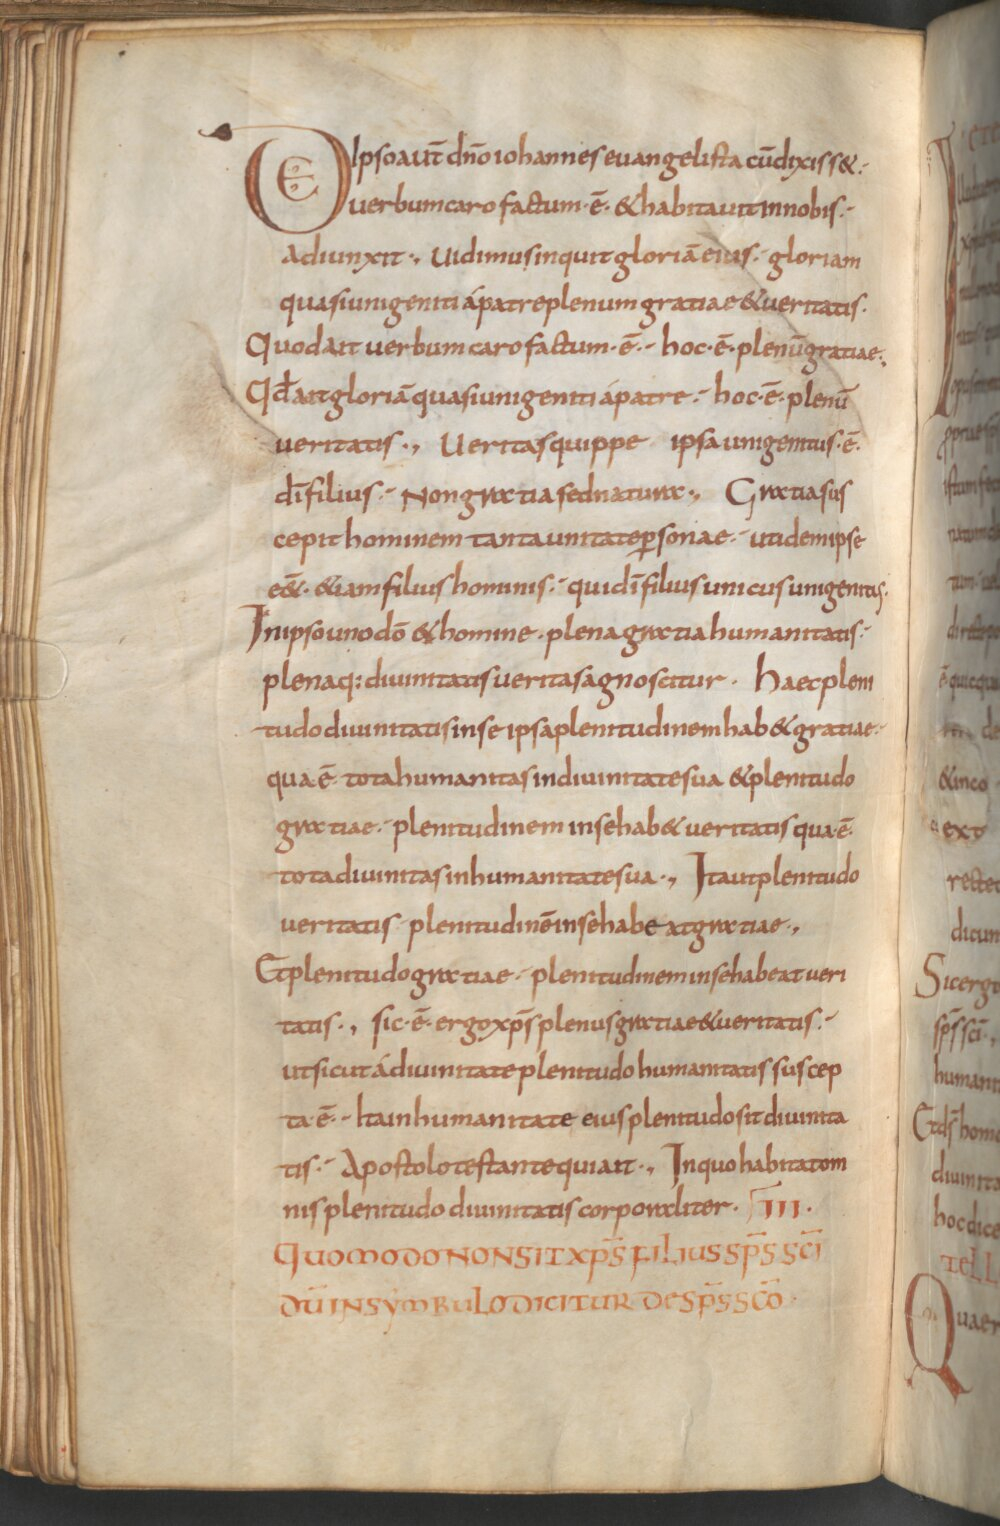 DE Ipso aut̄ dn̄o iohannes euangelista cū dixiss&·-
uerbum caro factum·ē· & habitauit in nobis·-
adiunxit·, Uidimus inquit gloriā eius·- gloriam
quasi unigeniti á patre plenum gratiae & ueritatis·
Quod ait uerbum caro factum·ē·- hoc·ē· plenū gratiae·,
Qd̄ ait gloriā quasi unigeniti á patre·- hoc·ē· plenū
ueritatis·, Ueritas quippe ipsa unigenitus·ē·
dī filius·- Non gratia sed natura·, Gratia sus
cepit hominem tanta unitate personae·- ut idem ipse
e&̄· &iam filius hominis·- qui dī filius unicus unigenitus·
In ipso uno dō & homine· plena gratia humanitatis·-
plenaq: diuinitatis ueritas agnoscitur· Haec pleni
tudo diuinitatis in se ipsa plenitudinem hab& gratiae·-
qua·ē· tota humanitas in diuinitate sua & plenitudo
gratiae·- plenitudinem in se hab& ueritatis qua·ē·
tota diuinitas in humanitate sua·, Ita ut plenitudo
ueritatis plenitudinē in se habeat gratiae·,
Et plenitudo gratiae·- plenitudinem in se habeat ueri
tatis·, sic·ē· ergo xp̄s plenus gratiae & ueritatis·-
ut sicut á diuinitate plenitudo humanitatis suscep
ta·ē·- Ita in humanitate eius plenitudo sit diuinita
tis·- Apostolo testante qui ait·, In quo habitat om
nis plenitudo diuinitatis corporaliter· III·
QUOMODO NON SIT XP̄S FILIUS SP̄S SC̄I
DŪ IN SYMBULO DICITUR DE SP̄S SC̄O·